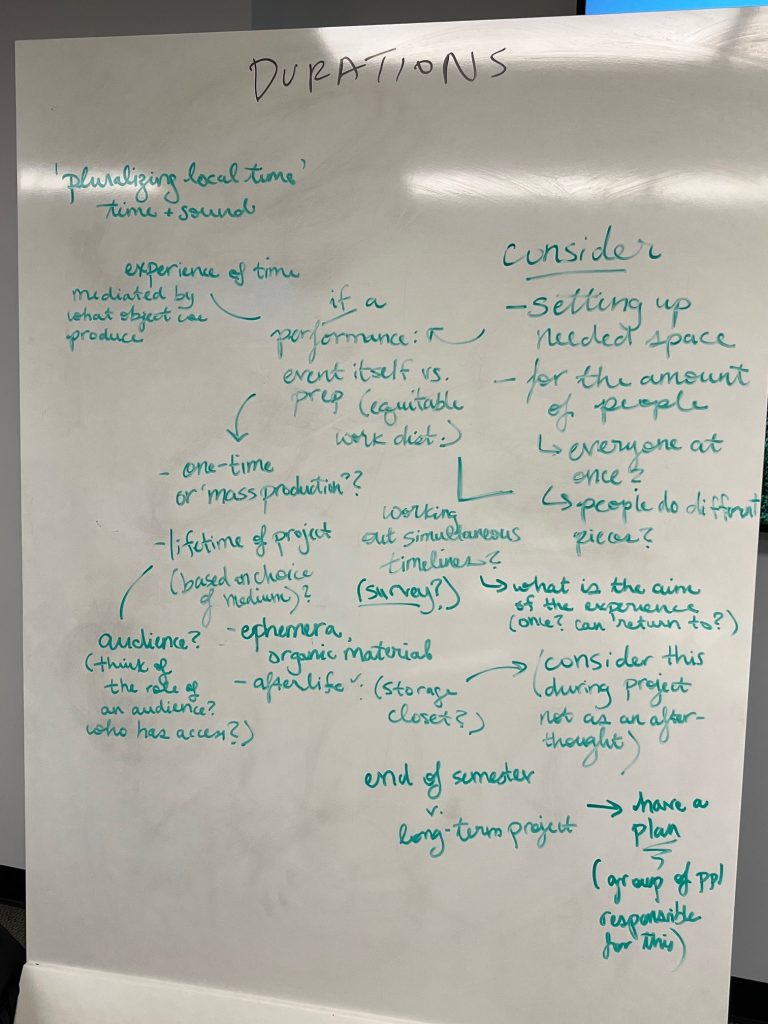 DURATIONS
'pluralizing local time'
time + sound
experience of time
mediated by
what object we
produce
if a
performance:
event itself vs.
prep (equitable
work dist.)
- one-time
or "mass production"?
- lifetime of project
(based on choice
of medium)?
audience?
(think of
the role of
an audience?
who has access?)
- ephemera,
organic material
- afterlife
(storage
closet?)
working
out simultaneous
timelines?
(survey?)
consider
- setting up
needed space
- for the amount
of people
↳ everyone at
once?
↳ people do different
pieces?
↳ what is the aim
of the experience
(once? can return to?)
(consider this
during project
not as an after-
thought)
end of semester
v.
long-term project
→ have a
plan
(group of ppl
responsible
for this)